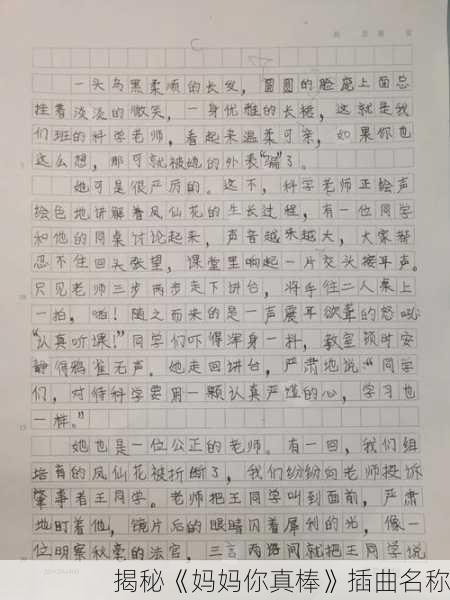 一头乌黑柔顺的长发，圆圆的脸庞上面总
挂着淡淡的微笑，一身优雅的长裙，这就是我
们班的科学老师，看起来温柔可亲，如果你也
这么想，那可就被她的外表“骗”了。
她可是很严厉的。这不，科学老师正绘声
绘色地讲解着凤仙花的生长过程，有一位同学
和他的同桌讨论起来，声音越来越大，大家都
忍不住回头张望，课堂里响起一片交头接耳声。
只见老师三步两步走下讲台，将手往二人桌上
一拍，啪！随之而来的是一声震耳欲聋的怒吼
“认真听课！”同学们吓得浑身一抖，教室顿时安
静得鸦雀无声。她走回讲台，严肃地说：“同学
们，对待科学要用一颗认真严谨的心，学习也
一样。”
她也是一位公正的老师。有一回，我们组
培育的凤仙花被折断了，我们纷纷向老师投诉
肇事者王同学。老师把王同学叫到面前，严肃
地盯着他，镜片后的眼睛闪着犀利的光，像一
位明察秋毫的法官，三言两语间就把王同学说
揭秘《妈妈你真棒》插曲名称